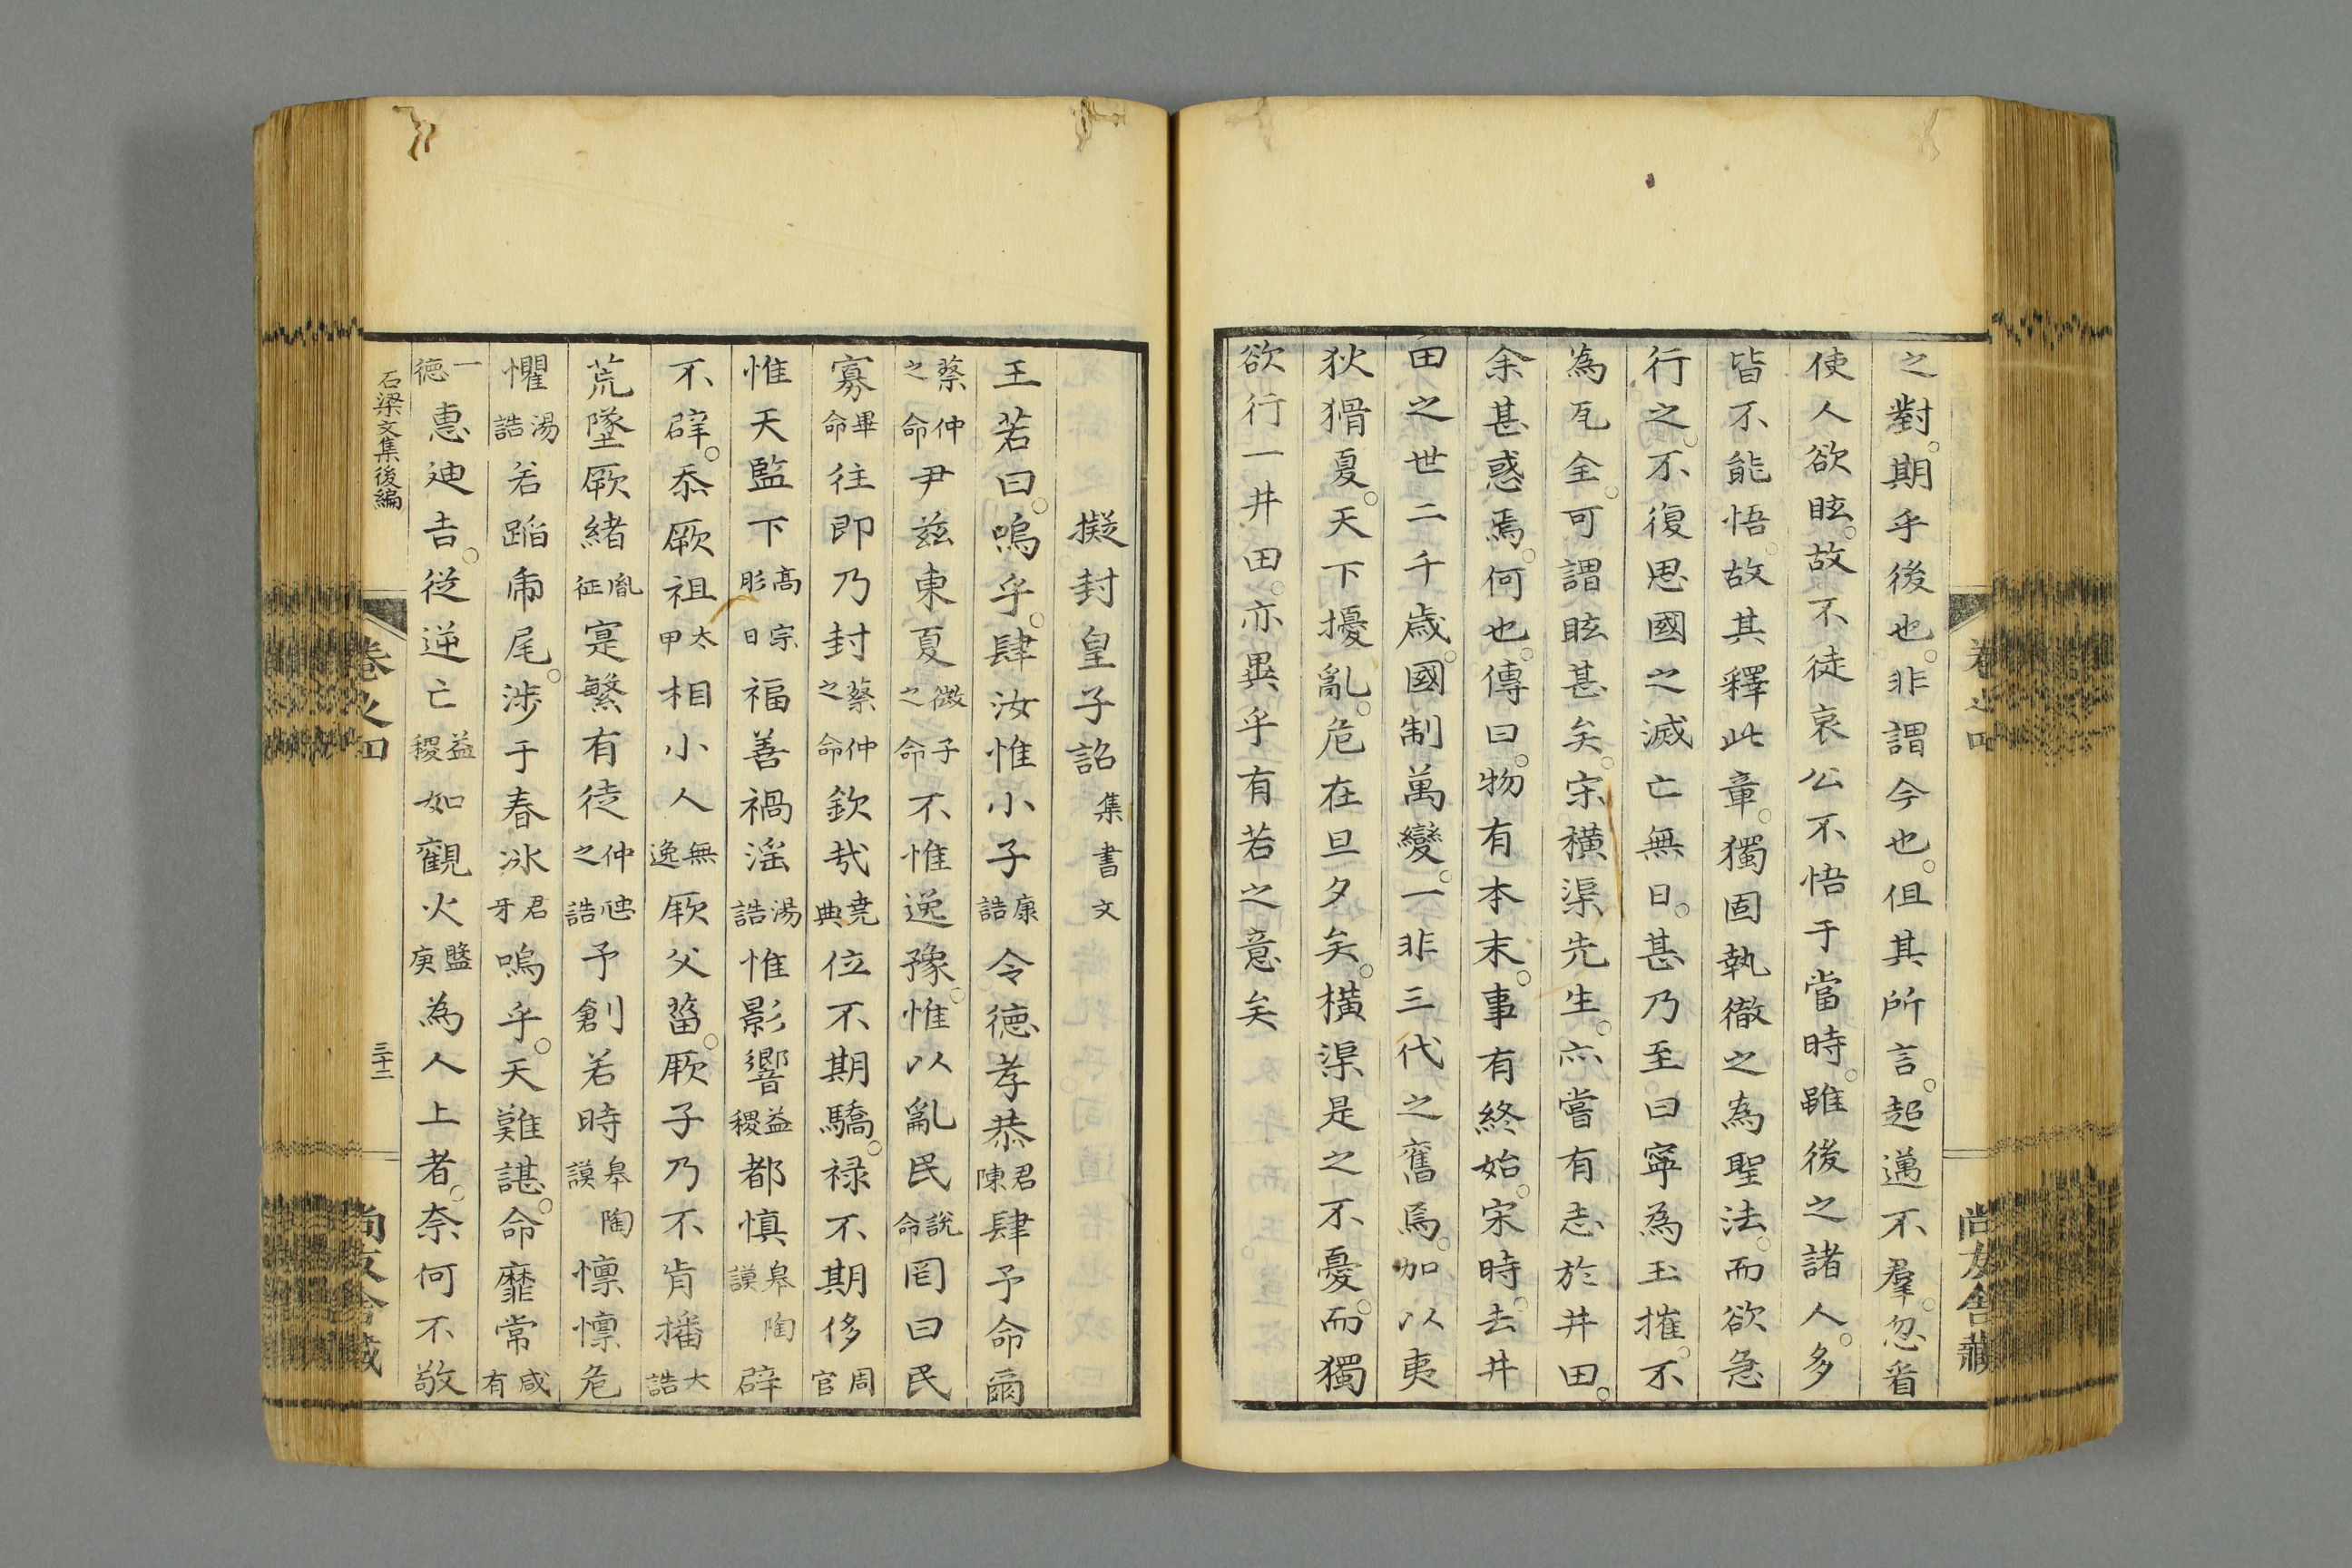 之對。期乎後也。非謂今也。但其所言。超邁不羣。忽看
使人欲眩。故不徒哀公不悟于當時。雖後之諸人。多
皆不能悟。故其釋此章。獨固執徹之為聖法。而欲急
行之。不復思國之滅亡無日。甚乃至曰寧為玉摧。不
為瓦全。可謂眩甚矣。宋橫渠先生。亦嘗有志於井田。
余甚惑焉。何也。傳曰。物有本末。事有終始。宋時。去井
田之世二千歲。國制萬變。一非三代之舊焉。加以夷
狄猾夏。天下擾亂。危在旦夕矣。橫渠是之不憂。而獨
欲行一井田。亦異乎有若之意矣
卷之四
尚友舍藏
擬封皇子詔 集書文
王若曰。嗚乎。肆汝惟小子 康誥 令德孝恭 君陳 肆予命爾
蔡仲之命 尹茲東夏 微子之命 不惟逸豫。惟以亂民 說命 罔曰民
寡 畢命 往即乃封 蔡仲之命 欽哉 堯典 位不期驕。祿不期侈 周官
惟天監下 高宗肜日 福善禍淫 湯誥 惟影響 益稷 都慎 皋陶謨 辟
不辟。忝厥祖 太甲 相小人 無逸 厥父菑。厥子乃不肯播 大誥
荒墜厥緒 胤征 寔繁有徒 仲虺之誥 予創若時 皋陶謨 懍懍危
懼 湯誥 若蹈虎尾。涉于春冰 君牙 嗚乎。天難諶。命靡常 咸有
一德 惠迪吉。從逆亡 益稷 如觀火 盤庚 為人上者。奈何不敬
石梁文集後編
卷之四
三十二
尚友舍藏